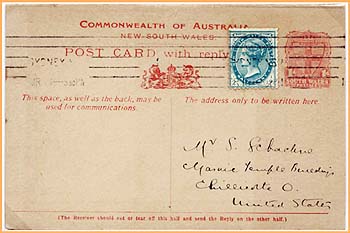 COMMONWEALTH OF AUSTRALIA
NEW SOUTH WALES
POST CARD with reply
SYDNEY
This space, as well as the back, may be
used for communications.
The address only to be written here.
Mr S.
Masonic Temple Buildings
Chillicothe O.
United States
(The Receiver should cut or tear off this half and send the Reply on the other half.)